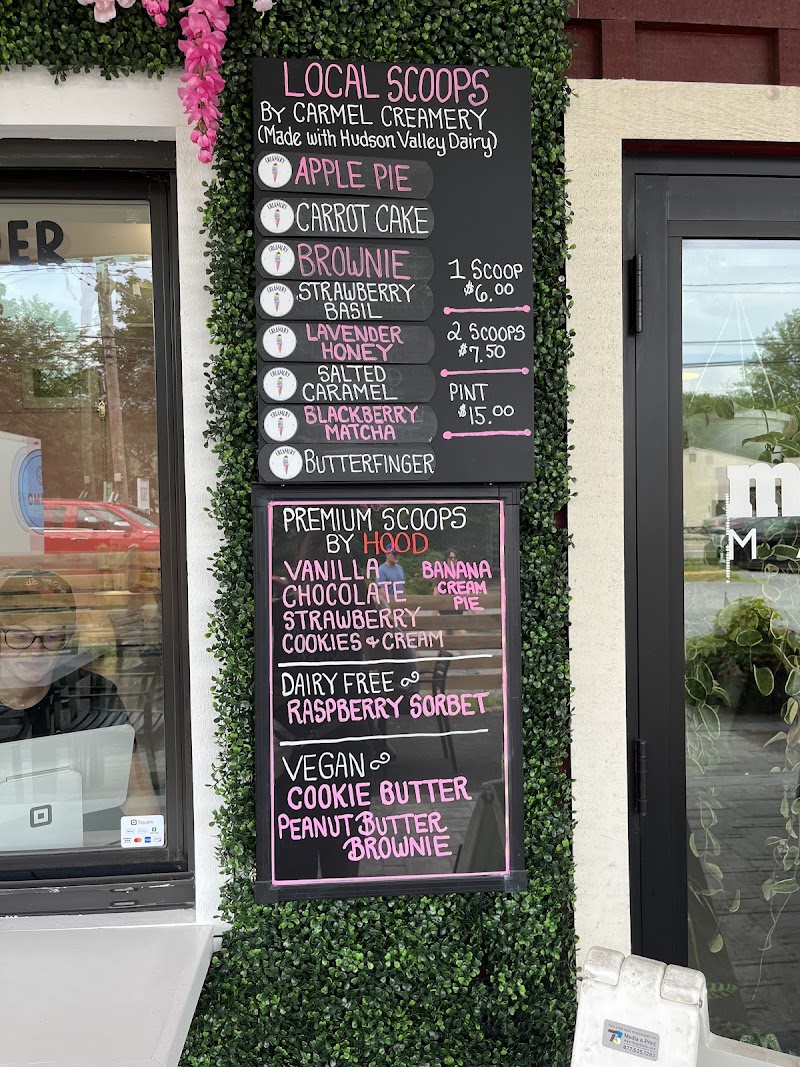 LOCAL SCOOPS
BY CARMEL CREAMERY
(Made with Hudson Valley Dairy)
CREAMERY
APPLE PIE
CREAMERY
CARROT CAKE
CREAMERY
BROWNIE
CREAMERY
STRAWBERRY
BASIL
CREAMERY
LAVENDER
HONEY
CREAMERY
SALTED
CARAMEL
CREAMERY
BLACKBERRY
MATCHA
CREAMERY
BUTTERFINGER
1 SCOOP
$6.00
2 SCOOPS
$7.50
PINT
$15.00
PREMIUM SCOOPS
BY HOOD
VANILLA
CHOCOLATE
STRAWBERRY
COOKIES & CREAM
BANANA
CREAM
PIE
DAIRY FREE
RASPBERRY SORBET
VEGAN
COOKIE BUTTER
PEANUT BUTTER
BROWNIE
DER
Square
m
MA
Media & Print